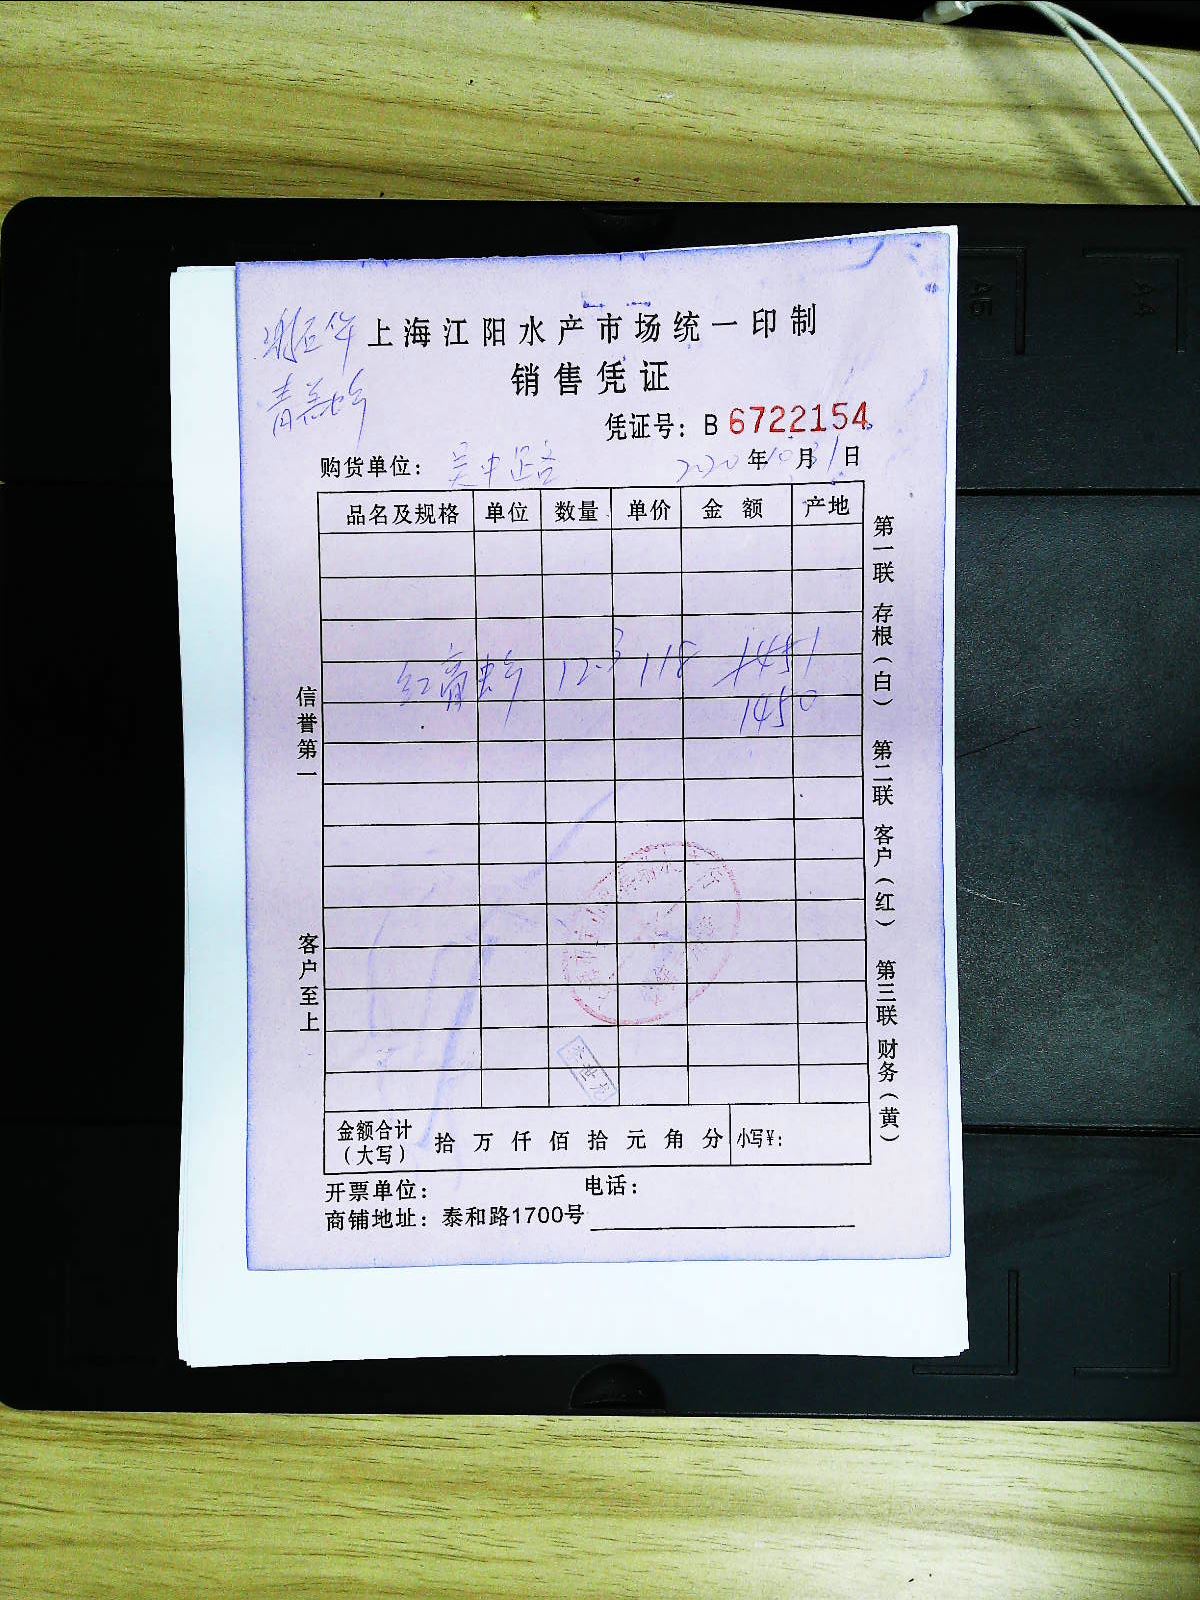 上海江阳水产市场统一印制
销售凭证
凭证号：B 6722154
购货单位：吴中路 2020年10月31日
品名及规格 单位 数量 单价 金额 产地
红膏 12.3 118 1451
1450
金额合计（大写） 拾 万 仟 佰 拾 元 角 分 小写¥：
开票单位： 电话：
商铺地址：泰和路1700号
信誉第一
客户至上
第一联 存根（白）
第二联 客户（红）
第三联 财务（黄）